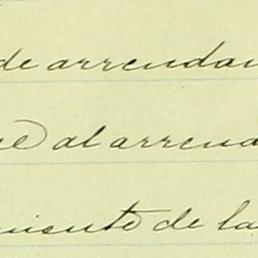 de arrendam
al arrend
miento de la